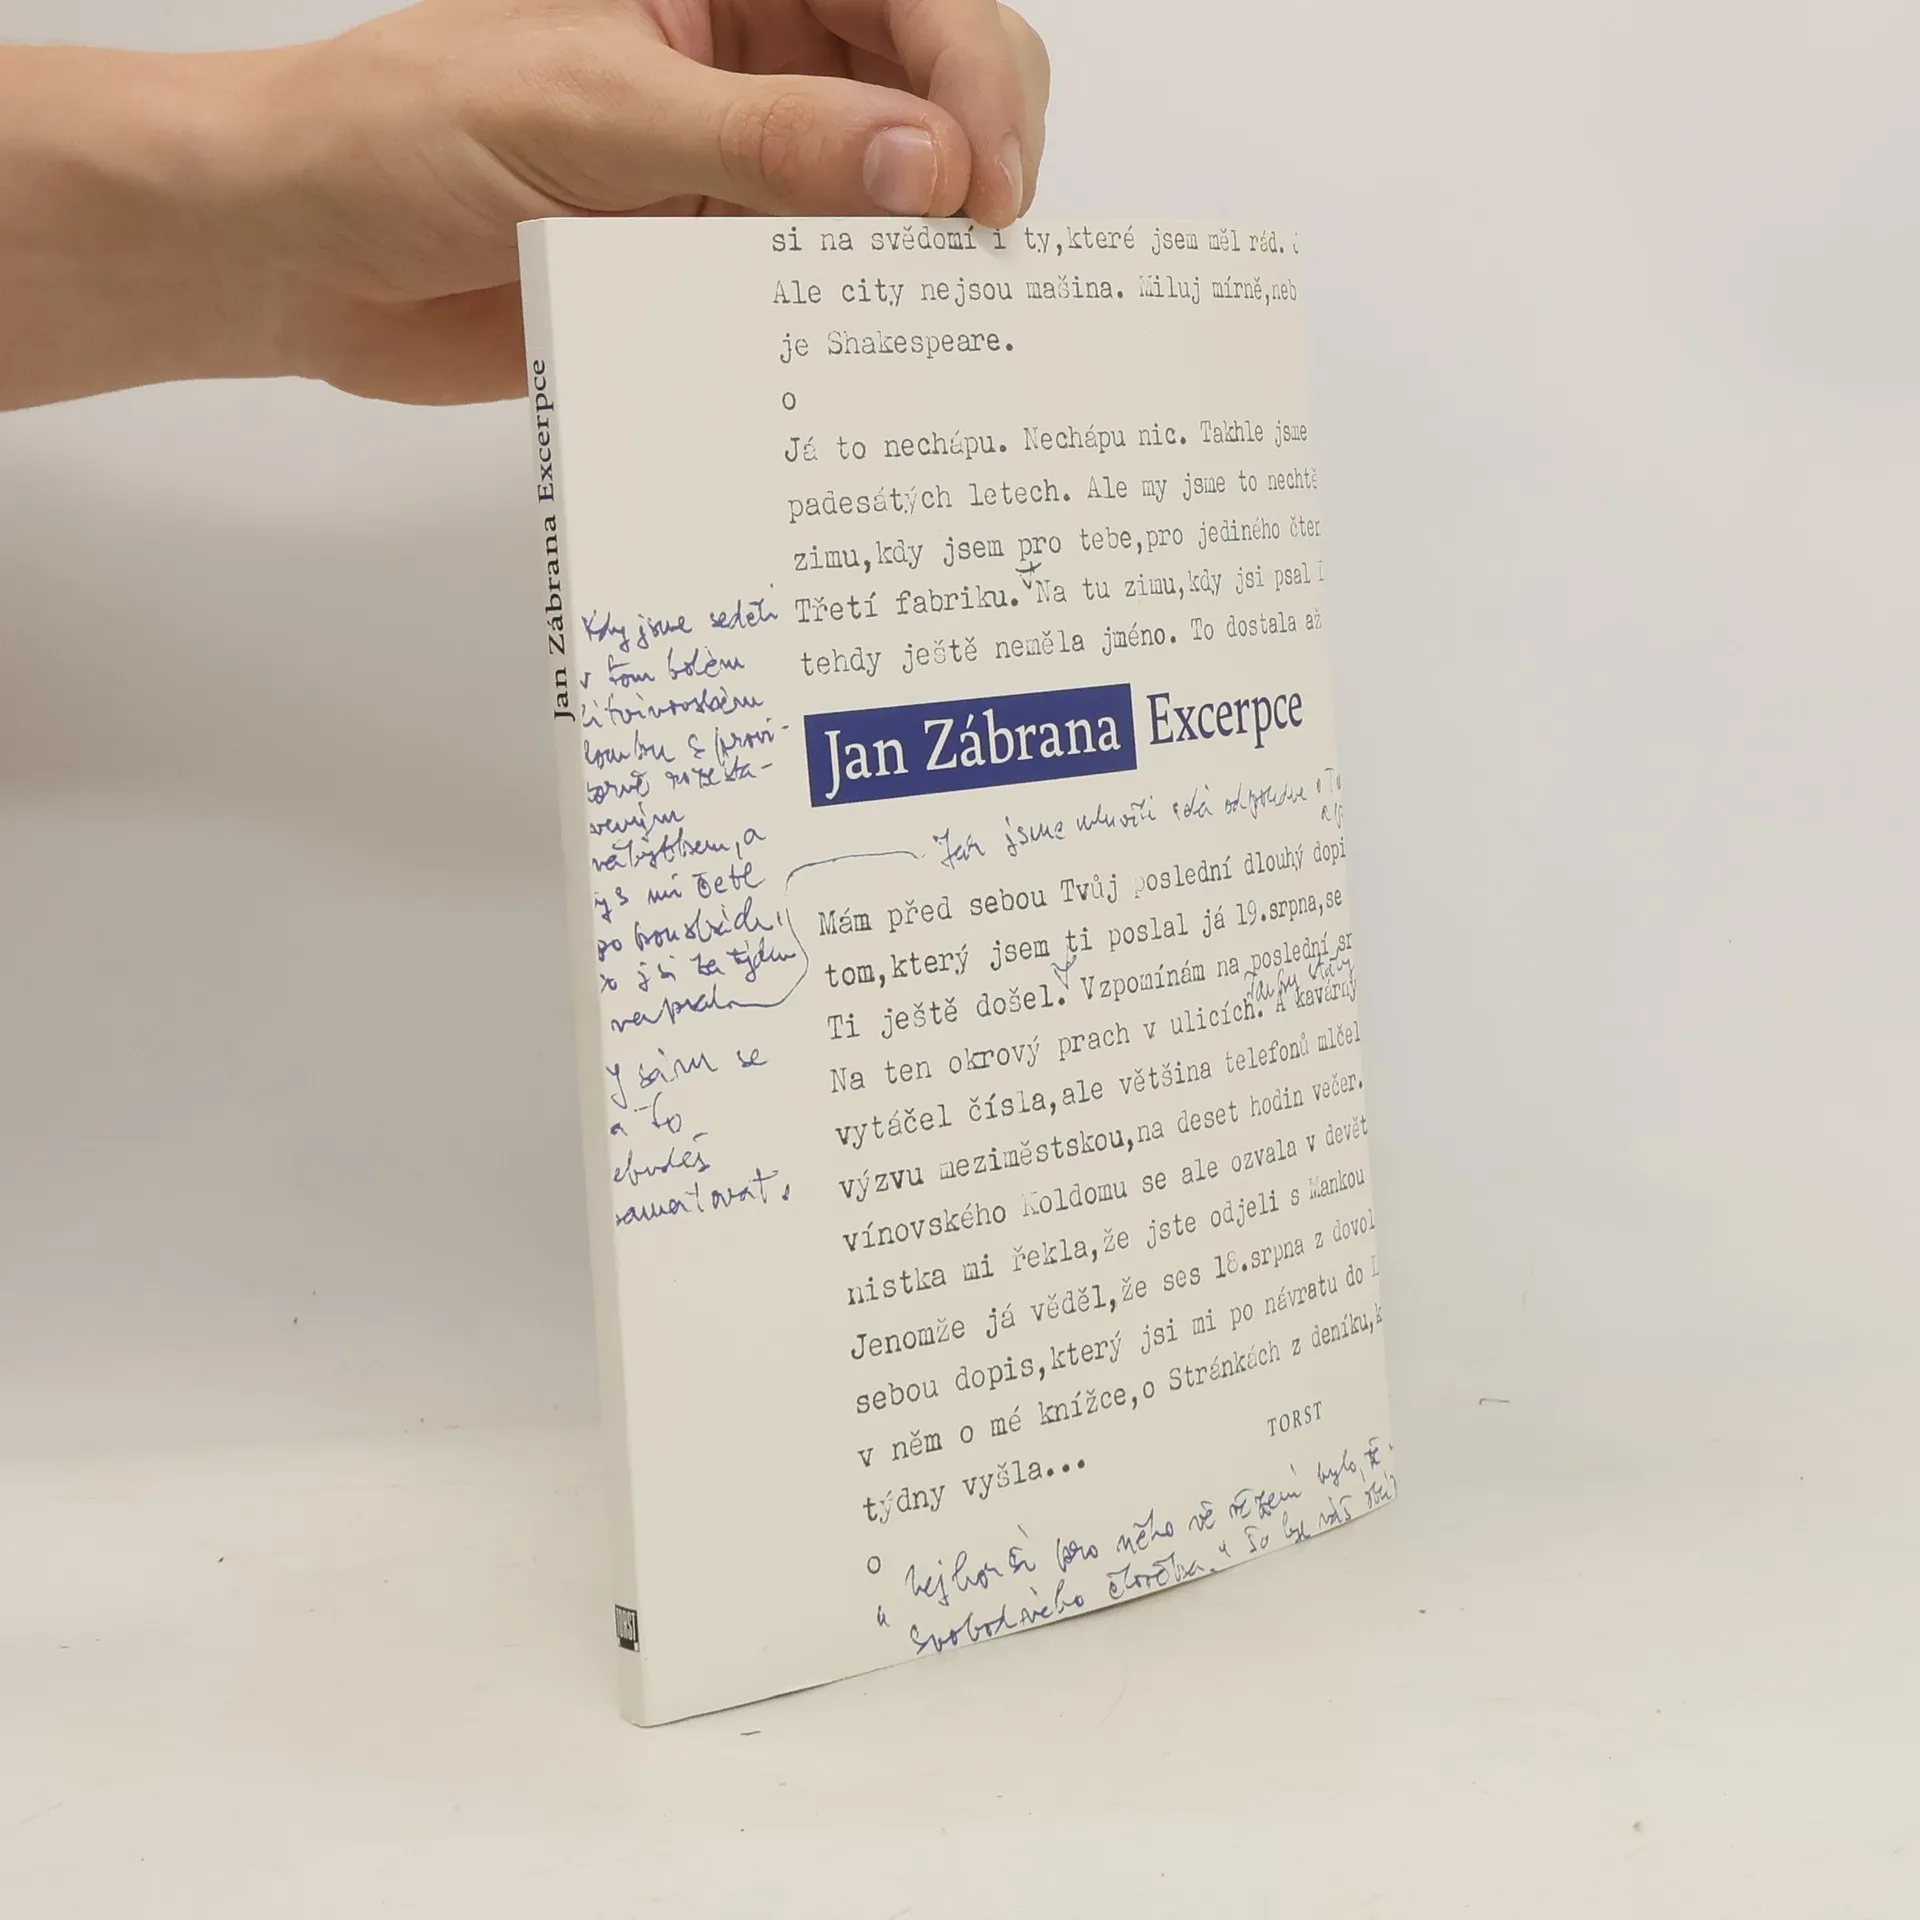 si na svědomí i ty,které jsem měl rád.
Ale city nejsou mašina. Miluj mírně,neb
je Shakespeare.
o
Já to nechápu. Nechápu nic. Takhle jsme
padesátých letech. Ale my jsme to nechtě
zimu,kdy jsem pro tebe,pro jediného čten
Třetí fabriku. Na tu zimu,kdy jsi psal
tehdy ještě neměla jméno. To dostala až
Jan Zábrana Excerpce
Jak jsme mluvili
Mám před sebou Tvůj poslední dlouhý dopi
tom,který jsem ti poslal já 19.srpna,se
Ti ještě došel. Vzpomínám na poslední sr
Na ten okrový prach v ulicích. A kavárny
vytáčel čísla,ale většina telefonů mlčel
výzvu meziměstskou,na deset hodin večer.
vínovského Koldomu se ale ozvala v devět
nistka mi řekla,že jste odjeli s Mankou
Jenomže já věděl,že ses 18.srpna z dovol
sebou dopis,který jsi mi po návratu do
v něm o mé knížce,o Stránkách z deníku,k
týdny vyšla...
TORST
o
" nejhorší pro něho ve vězení bylo, že
svobodného člověka." To by váš
Kdy jsme seděli
v tom bílém
litvínovském
nábytkem, a
mi četl
po kouskách,
jsi za týdnu
se
a to
Jan Zábrana Excerpce
TORST